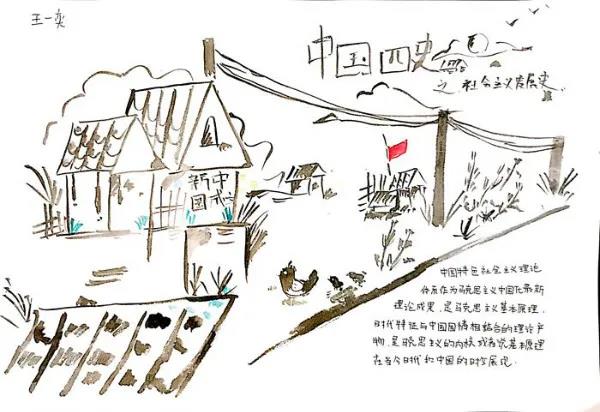 王一奕
中国四史
之社会主义发展史
新中
国成
中国特色社会主义理论
体系作为马克思主义中国化最新
理论成果,是马克思主义基本原理、
时代特征与中国国情相结合的理论产
物,是马克思主义的内核
基本原理
在当今时代和中国的时空展现.